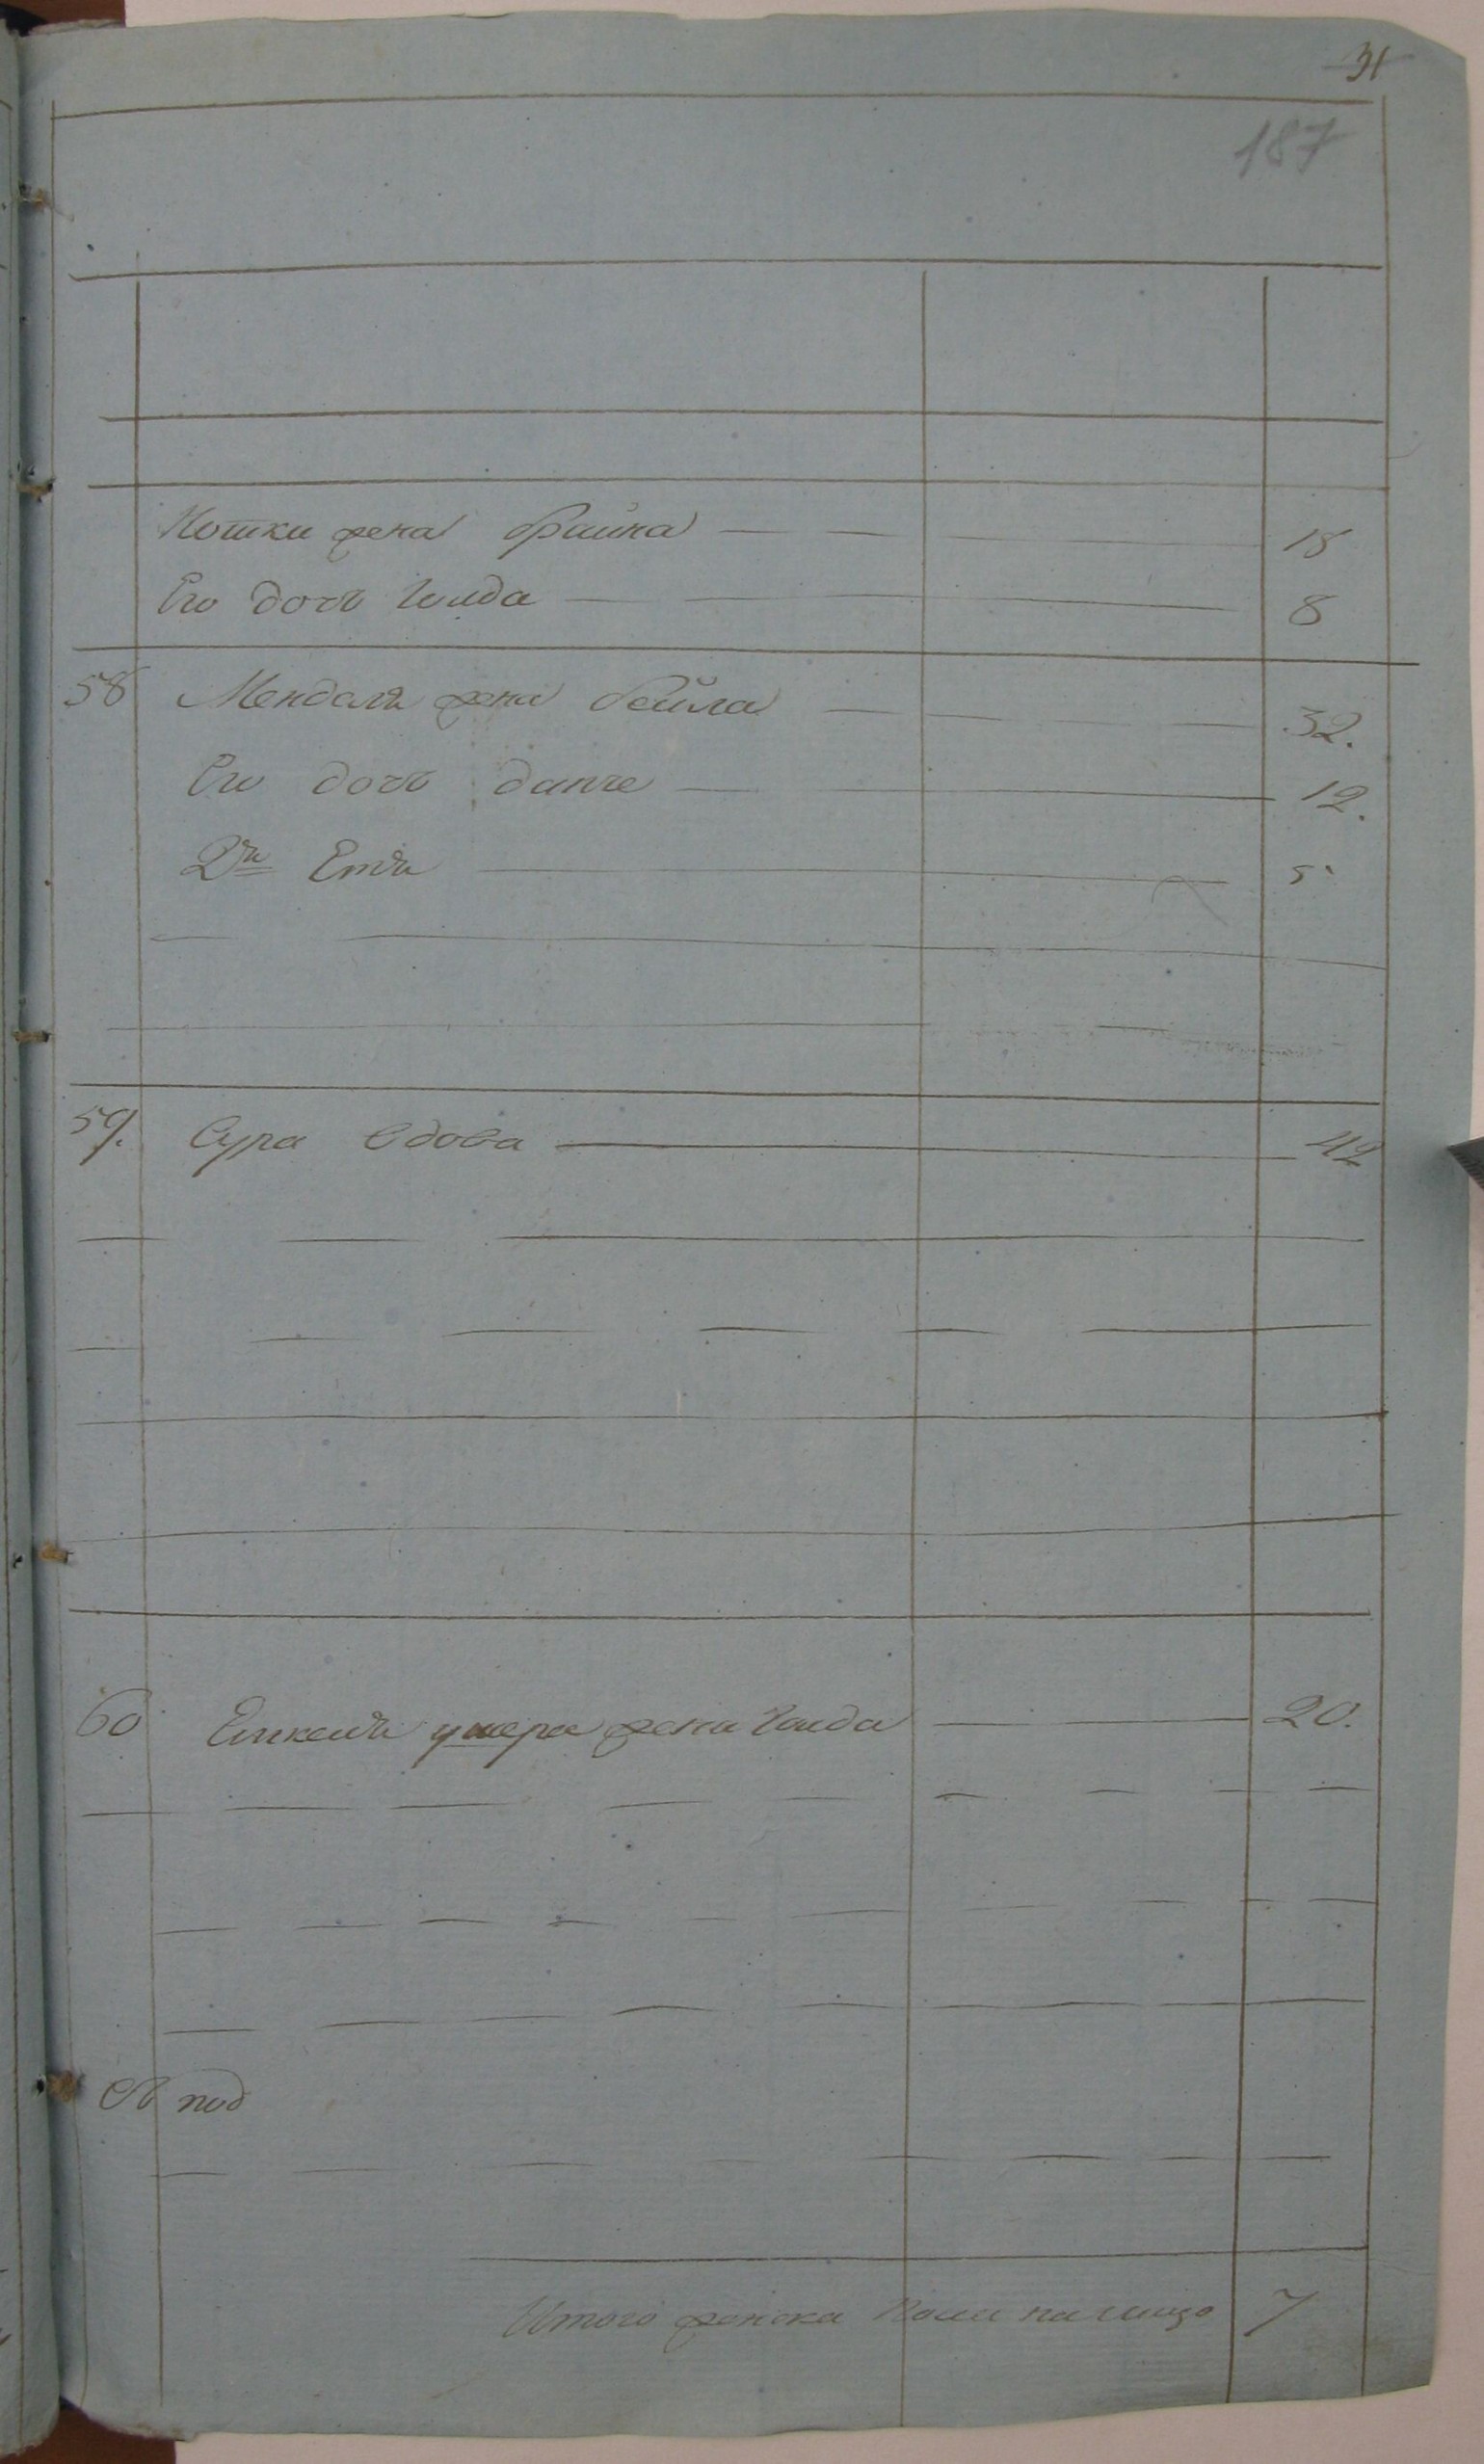 31
187
Мошки жена Фрайна 18
Его дочь Голда 8
58 Менделя жена Бейла 32.
Его дочь 12.
2я Етя 5
59. Сура вдова 42
60 жена Голда 20.
под
Итого женска Пола на лицо 7